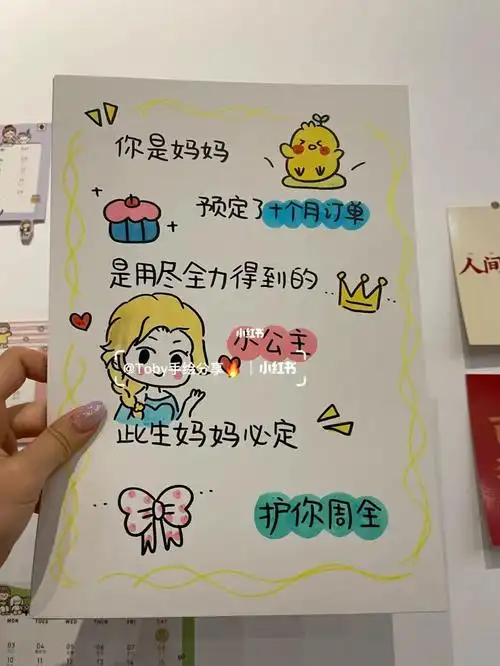 你是妈妈
预定了十个月订单
是用尽全力得到的
小红书
小公主
@Toby手绘分享 小红书
此生妈妈必定
护你周全
人间
MON TUES WED
03 04 05